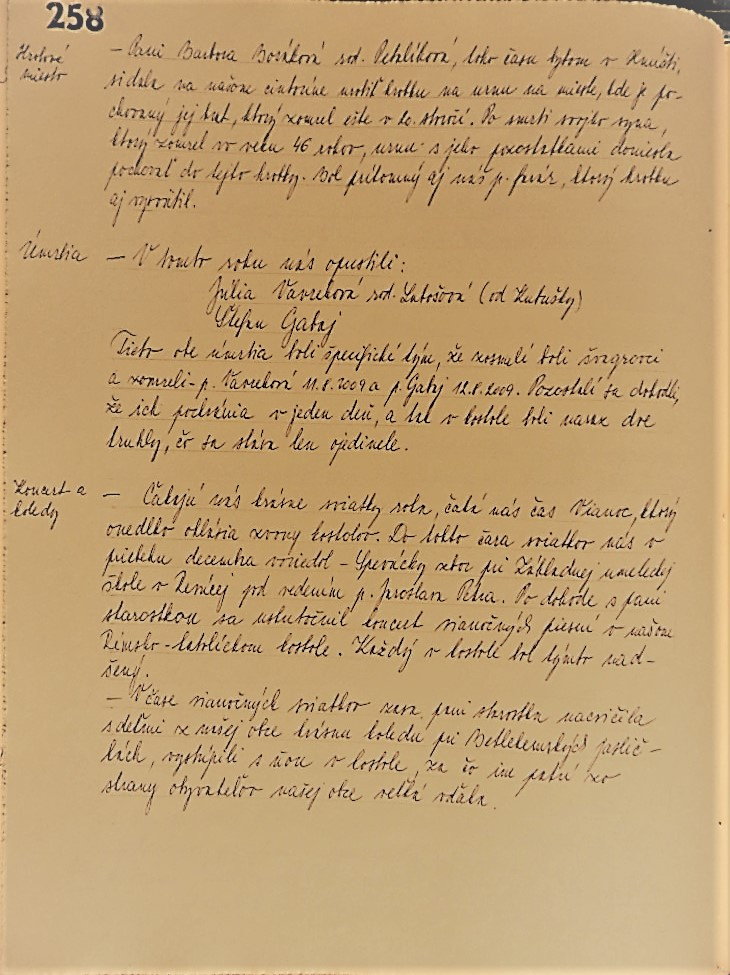 258
Hrobové
miesto
– Pani Barbora Boráková rod. Petrlíková, toho času bytom v Hnúšti,
si dala na našom cintoríne urobiť hrobku na urnu na mieste, kde je po-
chovaný jej brat, ktorý zomrel ešte v 20. storočí. Po smrti svojho syna,
ktorý zomrel vo veku 46 rokov, urnu s jeho pozostatkami doniesla
pochovať do tejto hrobky. Bol prítomný aj náš p. farár, ktorý hrobku
aj vysvätil.
Úmrtia
– V tomto roku nás opustili:
Júlia Vavreková rod. Lubošová (od Hubušky)
Štefan Gabaj
Tieto obe úmrtia boli špecifické tým, že zosnulí boli švagrovci
a zomreli – p. Vavreková 11.8.2009 a p. Gabaj 12.8.2009. Pozostalí sa dohodli,
že ich pochránia v jeden deň, a tak v kostole boli naraz dve
truhly, čo sa stáva len ojedinele.
Koncert a
koledy
– Čakajú nás krásne sviatky roka, čaká nás čas Vianoc, ktorý
onedlho ohlásia zvony kostolov. Do tohto čara sviatkov nás v
priebehu decembra voviedol – Spevácky zbor pri Základnej umeleckej
škole v pod vedením p. Jaroslava. Po dohode s pani
starostkou sa uskutočnil koncert vianočných piesní v našom
Rímsko-katolíckom kostole. Každý v kostole bol týmto nad-
šený.
– V čase vianočných sviatkov zasa pani starostka nacvičila
s deťmi z našej obce krásnu koledu pri Betlehemských jaslič-
kách, vystúpili s ňou v kostole, za čo im patrí zo
strany obyvateľov našej obce veľká vďaka.